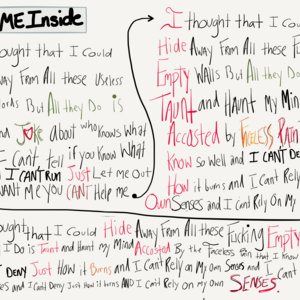 ME Inside
ought that I Could
Away From All these Useless
ords But All they Do is
nd Joke about who knows What
I Cant, tell if you Know What
I CAN'T RUN Just Let me Out
WANT ME You CANT Help me
I thought that I Could
Hide Away From All these Fu
Empty Walls But All they Do
Taunt and Haunt My Min
Accosted by Faceless Pain
Know so Well and I CAN'T DE
How it burns and I Cant Rely
Own Senses and I Cant Rely On My
ought that I Could Hide Away From All these Fucking Empty
I Do is Taunt and Haunt my Mind Accosted By the Faceless Pain that I Know
DENY Just How it Burns and I Can't Rely on My Own Senses and I Cant
ses and I Cant Deny Just How it burns AND I Cant Rely on my own SENSES.